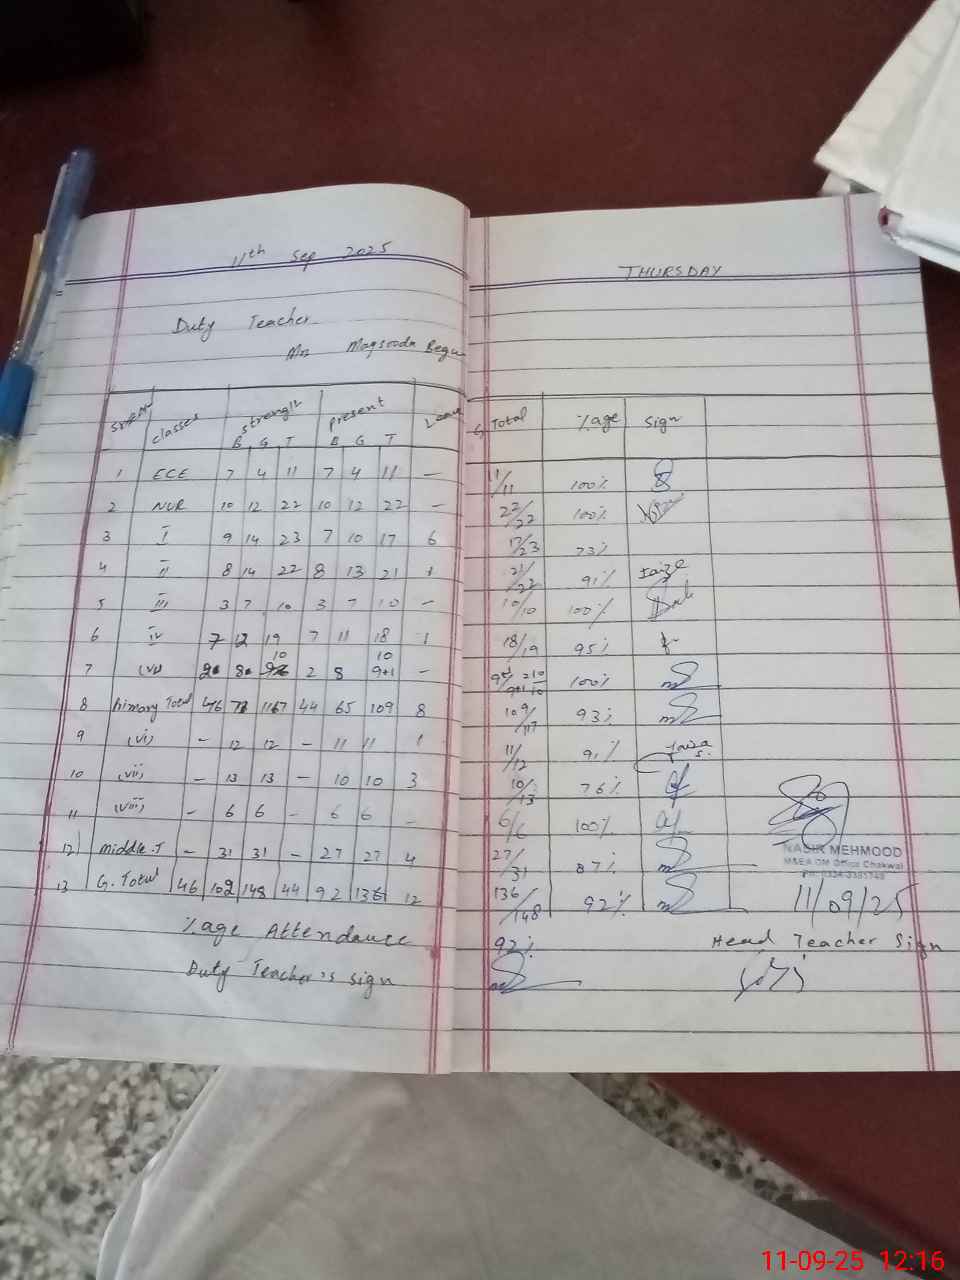 11th Sep 2025
THURSDAY
Duty Teacher
Mrs Maqsooda Begu
Sr# Classes Strength Present Leave Total %age Sign
B G T B G T
1 ECE 7 4 11 7 4 11 — 11/11 100%
2 NUR 10 12 22 10 12 22 — 22/22 100%
3 I 9 14 23 7 10 17 6 17/23 73%
4 II 8 14 22 8 13 21 1 21/22 91% Faiza
5 III 3 7 10 3 7 10 — 10/10 100%
6 IV 7 12 19 7 11 18 1 18/19 95%
10 10
7 (V) 2 8 2 8 9+1 — 100%
8 Primary Total 46 71 117 44 65 109 8 109/117 93%
9 (vi) — 12 12 — 11 11 1 11/12 91% Faiza S.
10 (vii) — 13 13 — 10 10 3 10/13 76%
11 (viii) — 6 6 — 6 6 — 6/6 100%
12) middle.T — 31 31 — 27 27 4 27/31 87%
13 G. Total 46 102 148 44 92 136 12 136/148 92%
NASIR MEHMOOD
M&EA DM Office Chakwal
11/09/25
%age Attendance 92%
Head Teacher Sign
Duty Teacher's sign
11-09-25 12:16